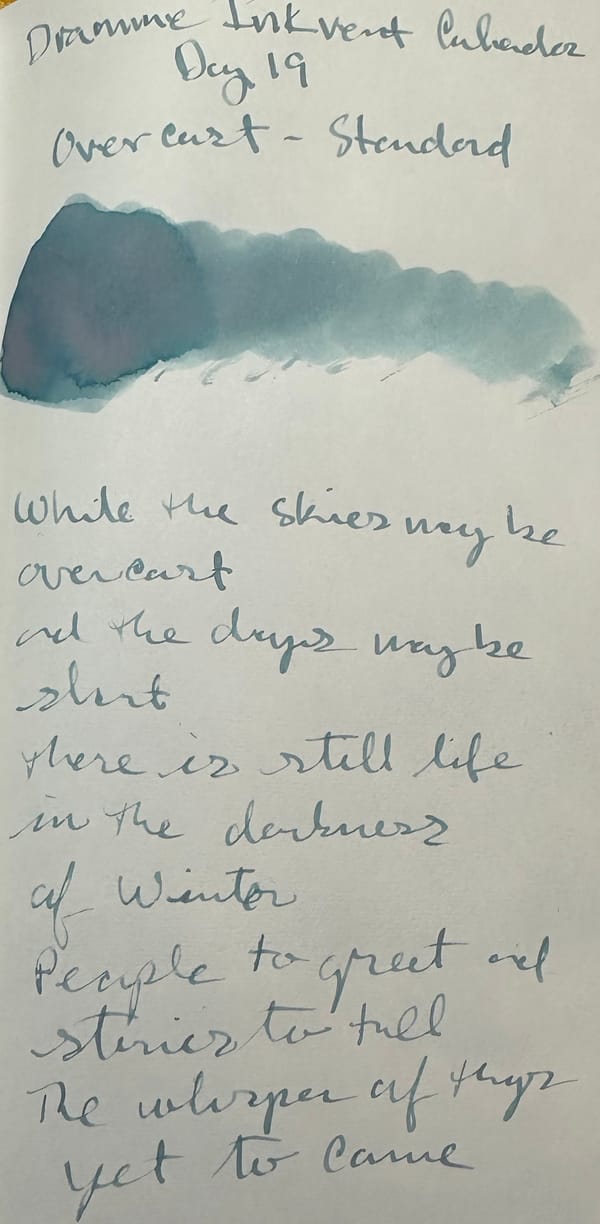 Diamine Inkvent Calendar
Day 19
Overcast - Standard
While the skies may be
overcast
and the days may be
short
there is still life
in the darkness
of Winter
People to greet and
stories to tell
The whisper of things
yet to come